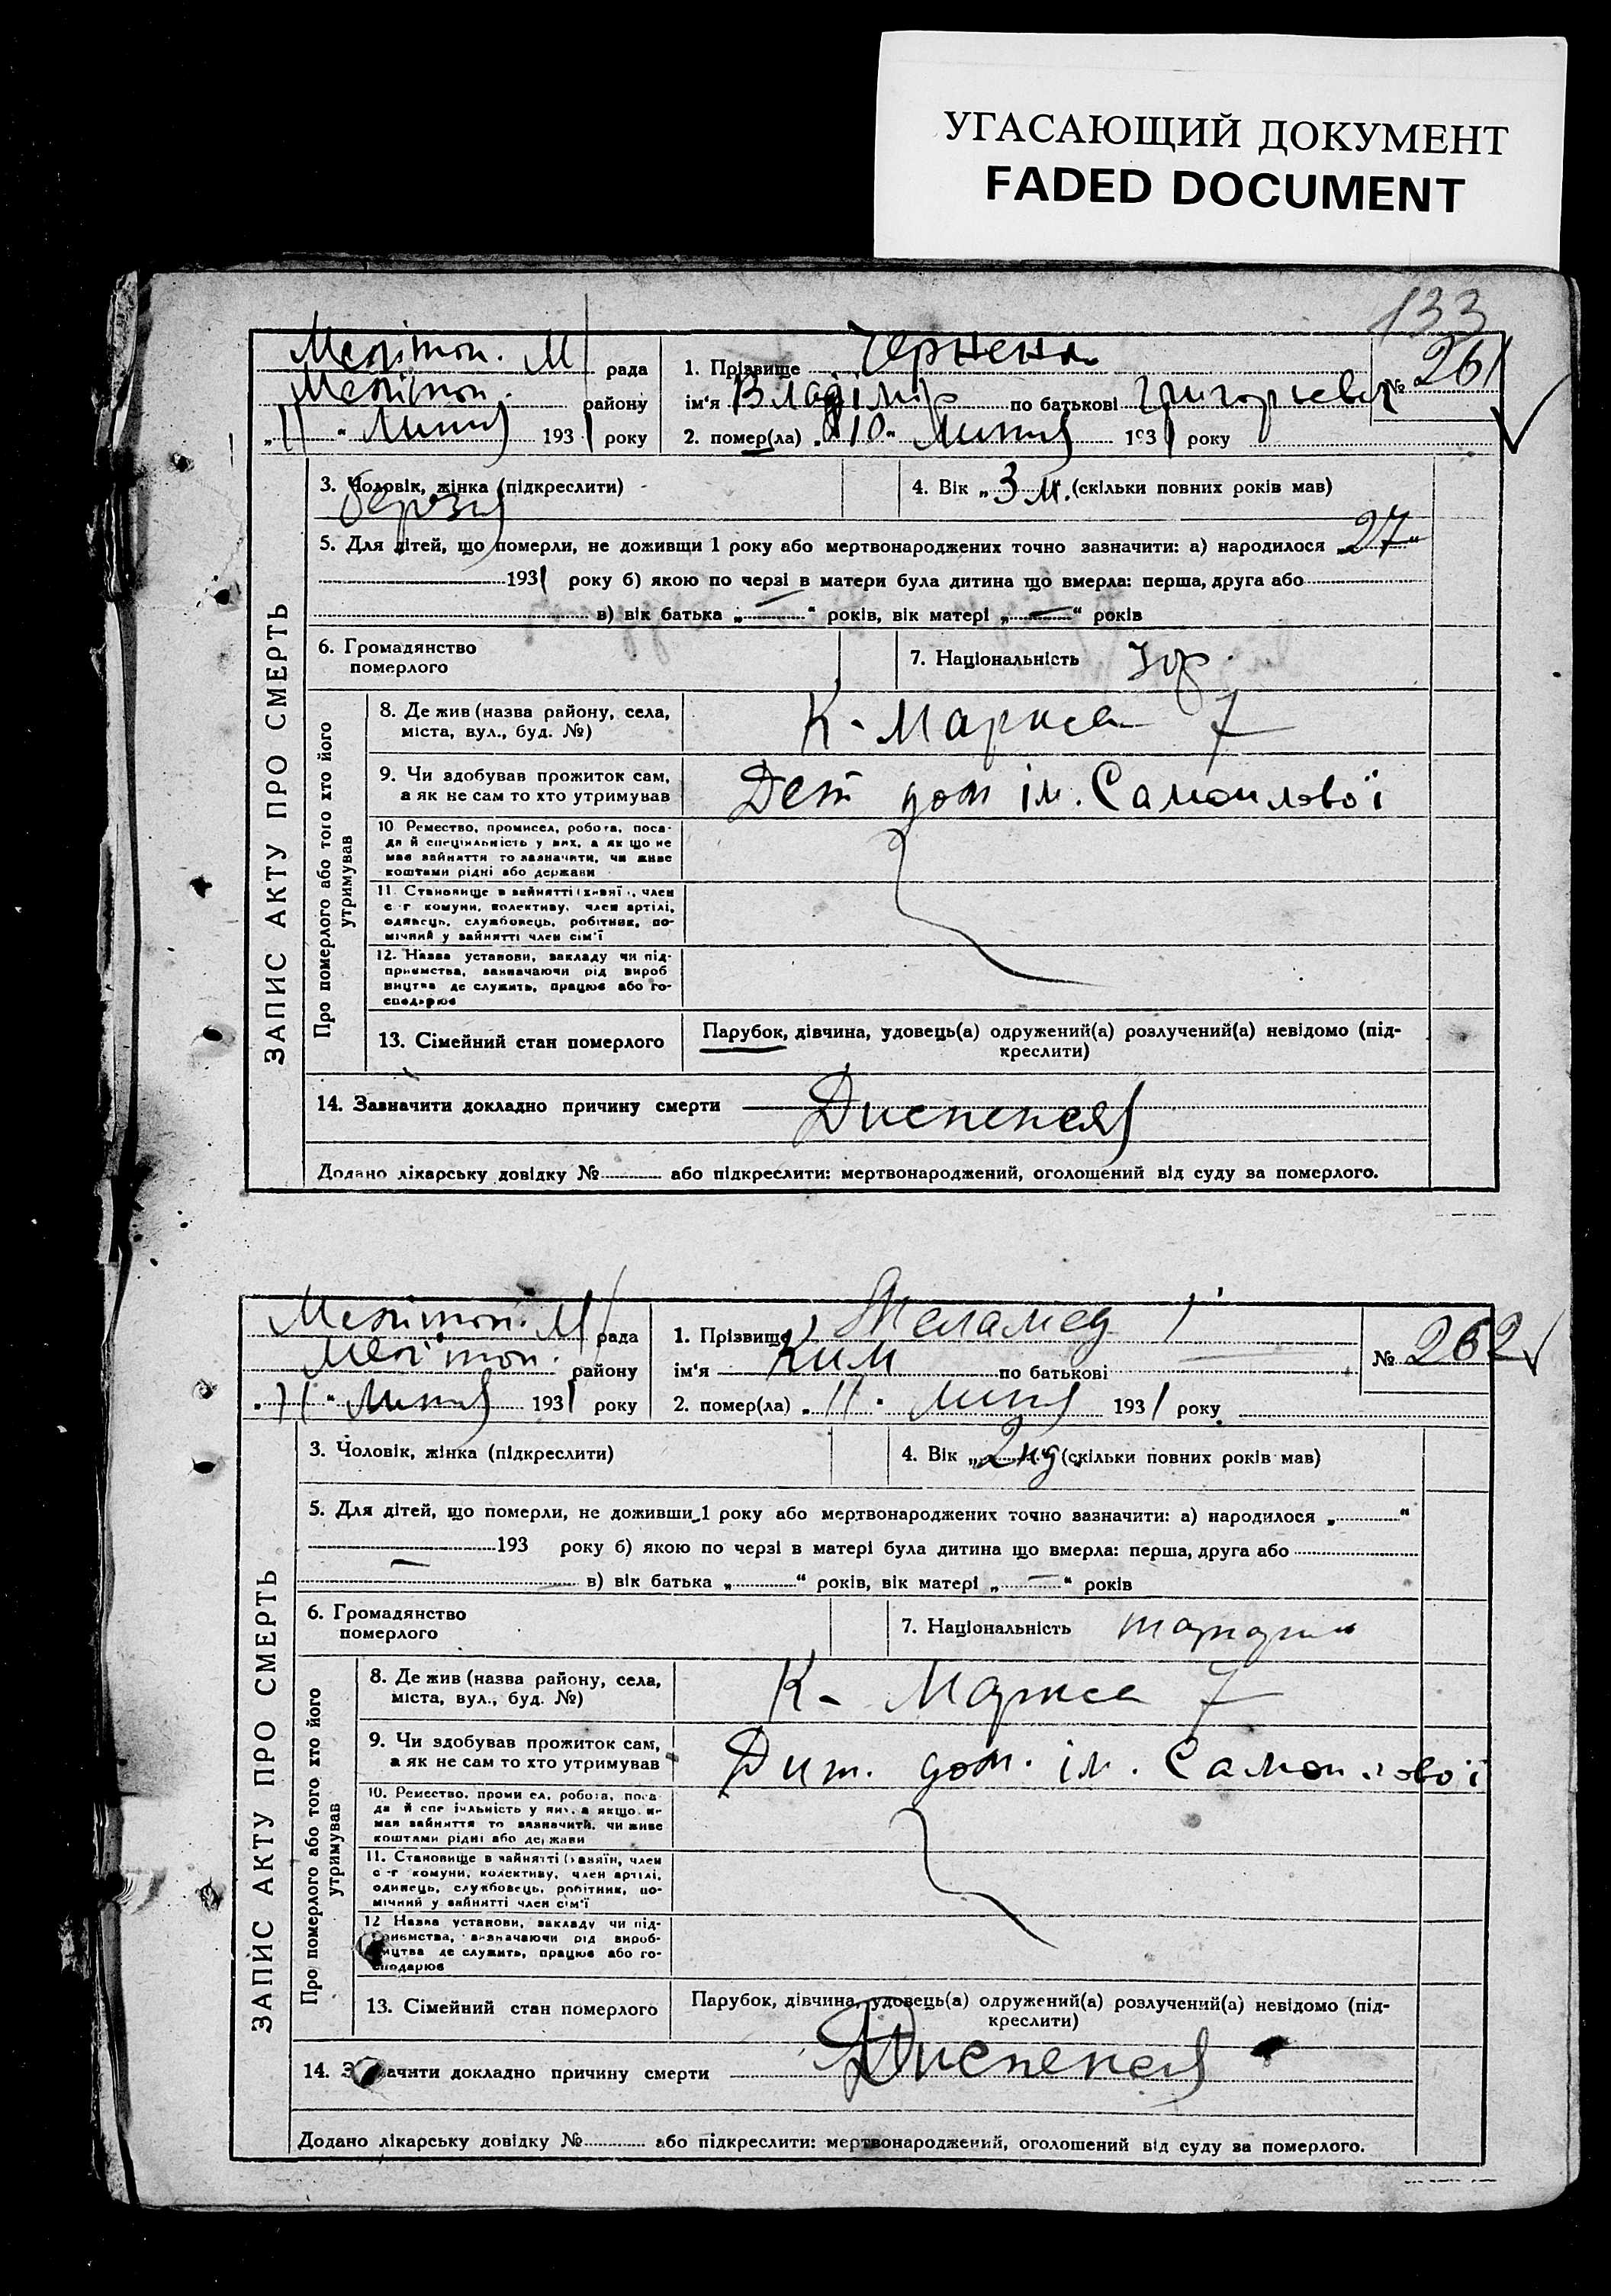 УГАСАЮЩИЙ ДОКУМЕНТ
FADED DOCUMENT
133
Мелітоп. М рада
Мелітоп. району
„11“ Липня 1931 року
1. Прізвище Чернена
ім'я Владімір по батькові Григорьевич
№ 261
2. помер(ла) „10“ Липня 1931 року
ЗАПИС АКТУ ПРО СМЕРТЬ
3. Чоловік, жінка (підкреслити)
4. Вік „3 м. (скільки повних років мав)
березня
5. Для дітей, що померли, не доживщи 1 року або мертвонароджених точно зазначити: а) народилося „27“
1931 року б) якою по черзі в матери була дитина що вмерла: перша, друга або
в) вік батька „—“ років, вік матері „—“ років
6. Громадянство померлого
7. Національність
Про померлого або того хто його утримував
8. Де жив (назва району, села, міста, вул., буд. №)
К-Маркса 7
9. Чи здобував прожиток сам, а як не сам то хто утримував
Дет дом ім. Самоилової
10 Ремество, промисел, робота, поса-
да й спеціяльність у них, а як що не
мав зайняття то зазначити, чи живе
коштами рідні або держави
11. Становище в зайнятті (хазяїн, член
с-г комуни, колективу, член артілі,
одинець, службовець, робітник, по-
мічний у зайнятті член сім'ї
12. Назва установи, закладу чи під-
приємства, зазначаючи рід вироб
ництва де служить, працює або го-
сподарює
13. Сімейний стан померлого
Парубок, дівчина, удовець(а) одружений(а) розлучений(а) невідомо (під-
креслити)
14. Зазначити докладно причину смерти Диспепсия
Додано лікарську довідку № або підкреслити: мертвонароджений, оголошений від суду за померлого.
Мелітоп. М рада
Мелітоп. району
„11“ Липня 1931 року
1. Прізвище Меламед
ім'я Ким по батькові
№ 262
2. помер(ла) „11“ Липня 1931 року
ЗАПИС АКТУ ПРО СМЕРТЬ
3. Чоловік, жінка (підкреслити)
4. Вік (скільки повних років мав)
5. Для дітей, що померли, не доживши 1 року або мертвонароджених точно зазначити: а) народилося „ “
193 року б) якою по черзі в матері була дитина що вмерла: перша, друга або
в) вік батька „ “ років, вік матері „—“ років
6. Громадянство померлого
7. Національність
Про померлого або того хто його утримував
8. Де жив (назва району, села, міста, вул., буд. №)
К- Маркса 7
9. Чи здобував прожиток сам, а як не сам то хто утримував
Дит. дом. ім. Самоилової
10. Ремество, промисел, робота, поса
да й спеціяльність у них, а якщо не
мав зайняття то зазначити, чи живе
коштами рідні або держави
11. Становище в зайнятті (хазяїн, член
с-г комуни, колективу, член артілі,
одинець, службовець, робітник, по-
мічний у зайнятті член сім'ї
12 Назва установи, закладу чи під-
приємства, зазначаючи рід вироб-
ництва де служить, працює або го-
сподарює
13. Сімейний стан померлого
Парубок, дівчина, удовець(а) одружений(а) розлучений(а) невідомо (під-
креслити)
14. Зазначити докладно причину смерти Диспепсия
Додано лікарську довідку № або підкреслити: мертвонароджений, оголошений від суду за померлого.